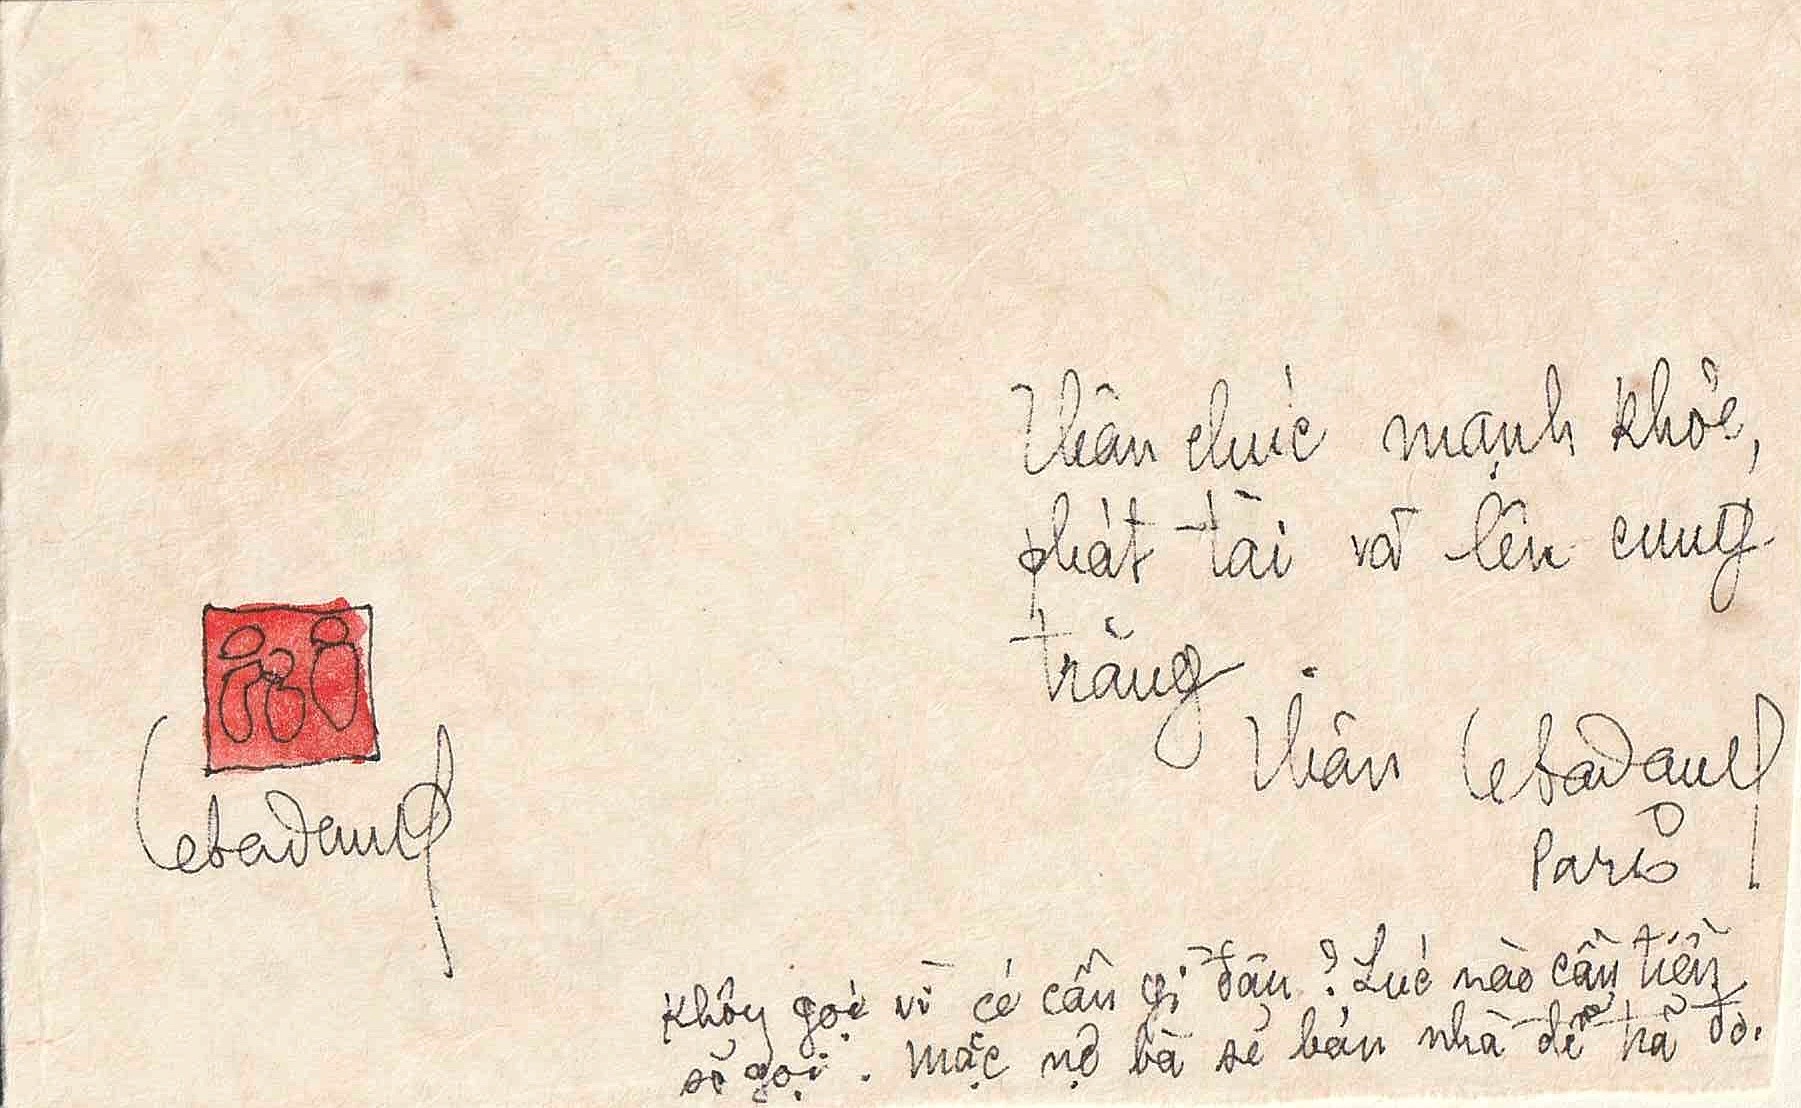 Thân chúc mạnh khỏe,
phát tài và lên cung
trăng.
Thân Lebadang
Paris
Lebadang
Không gọi vì có cần gì đâu? Lúc nào cần tiền
sẽ gọi. Mắc nợ bà sẽ bán nhà để trả đó.